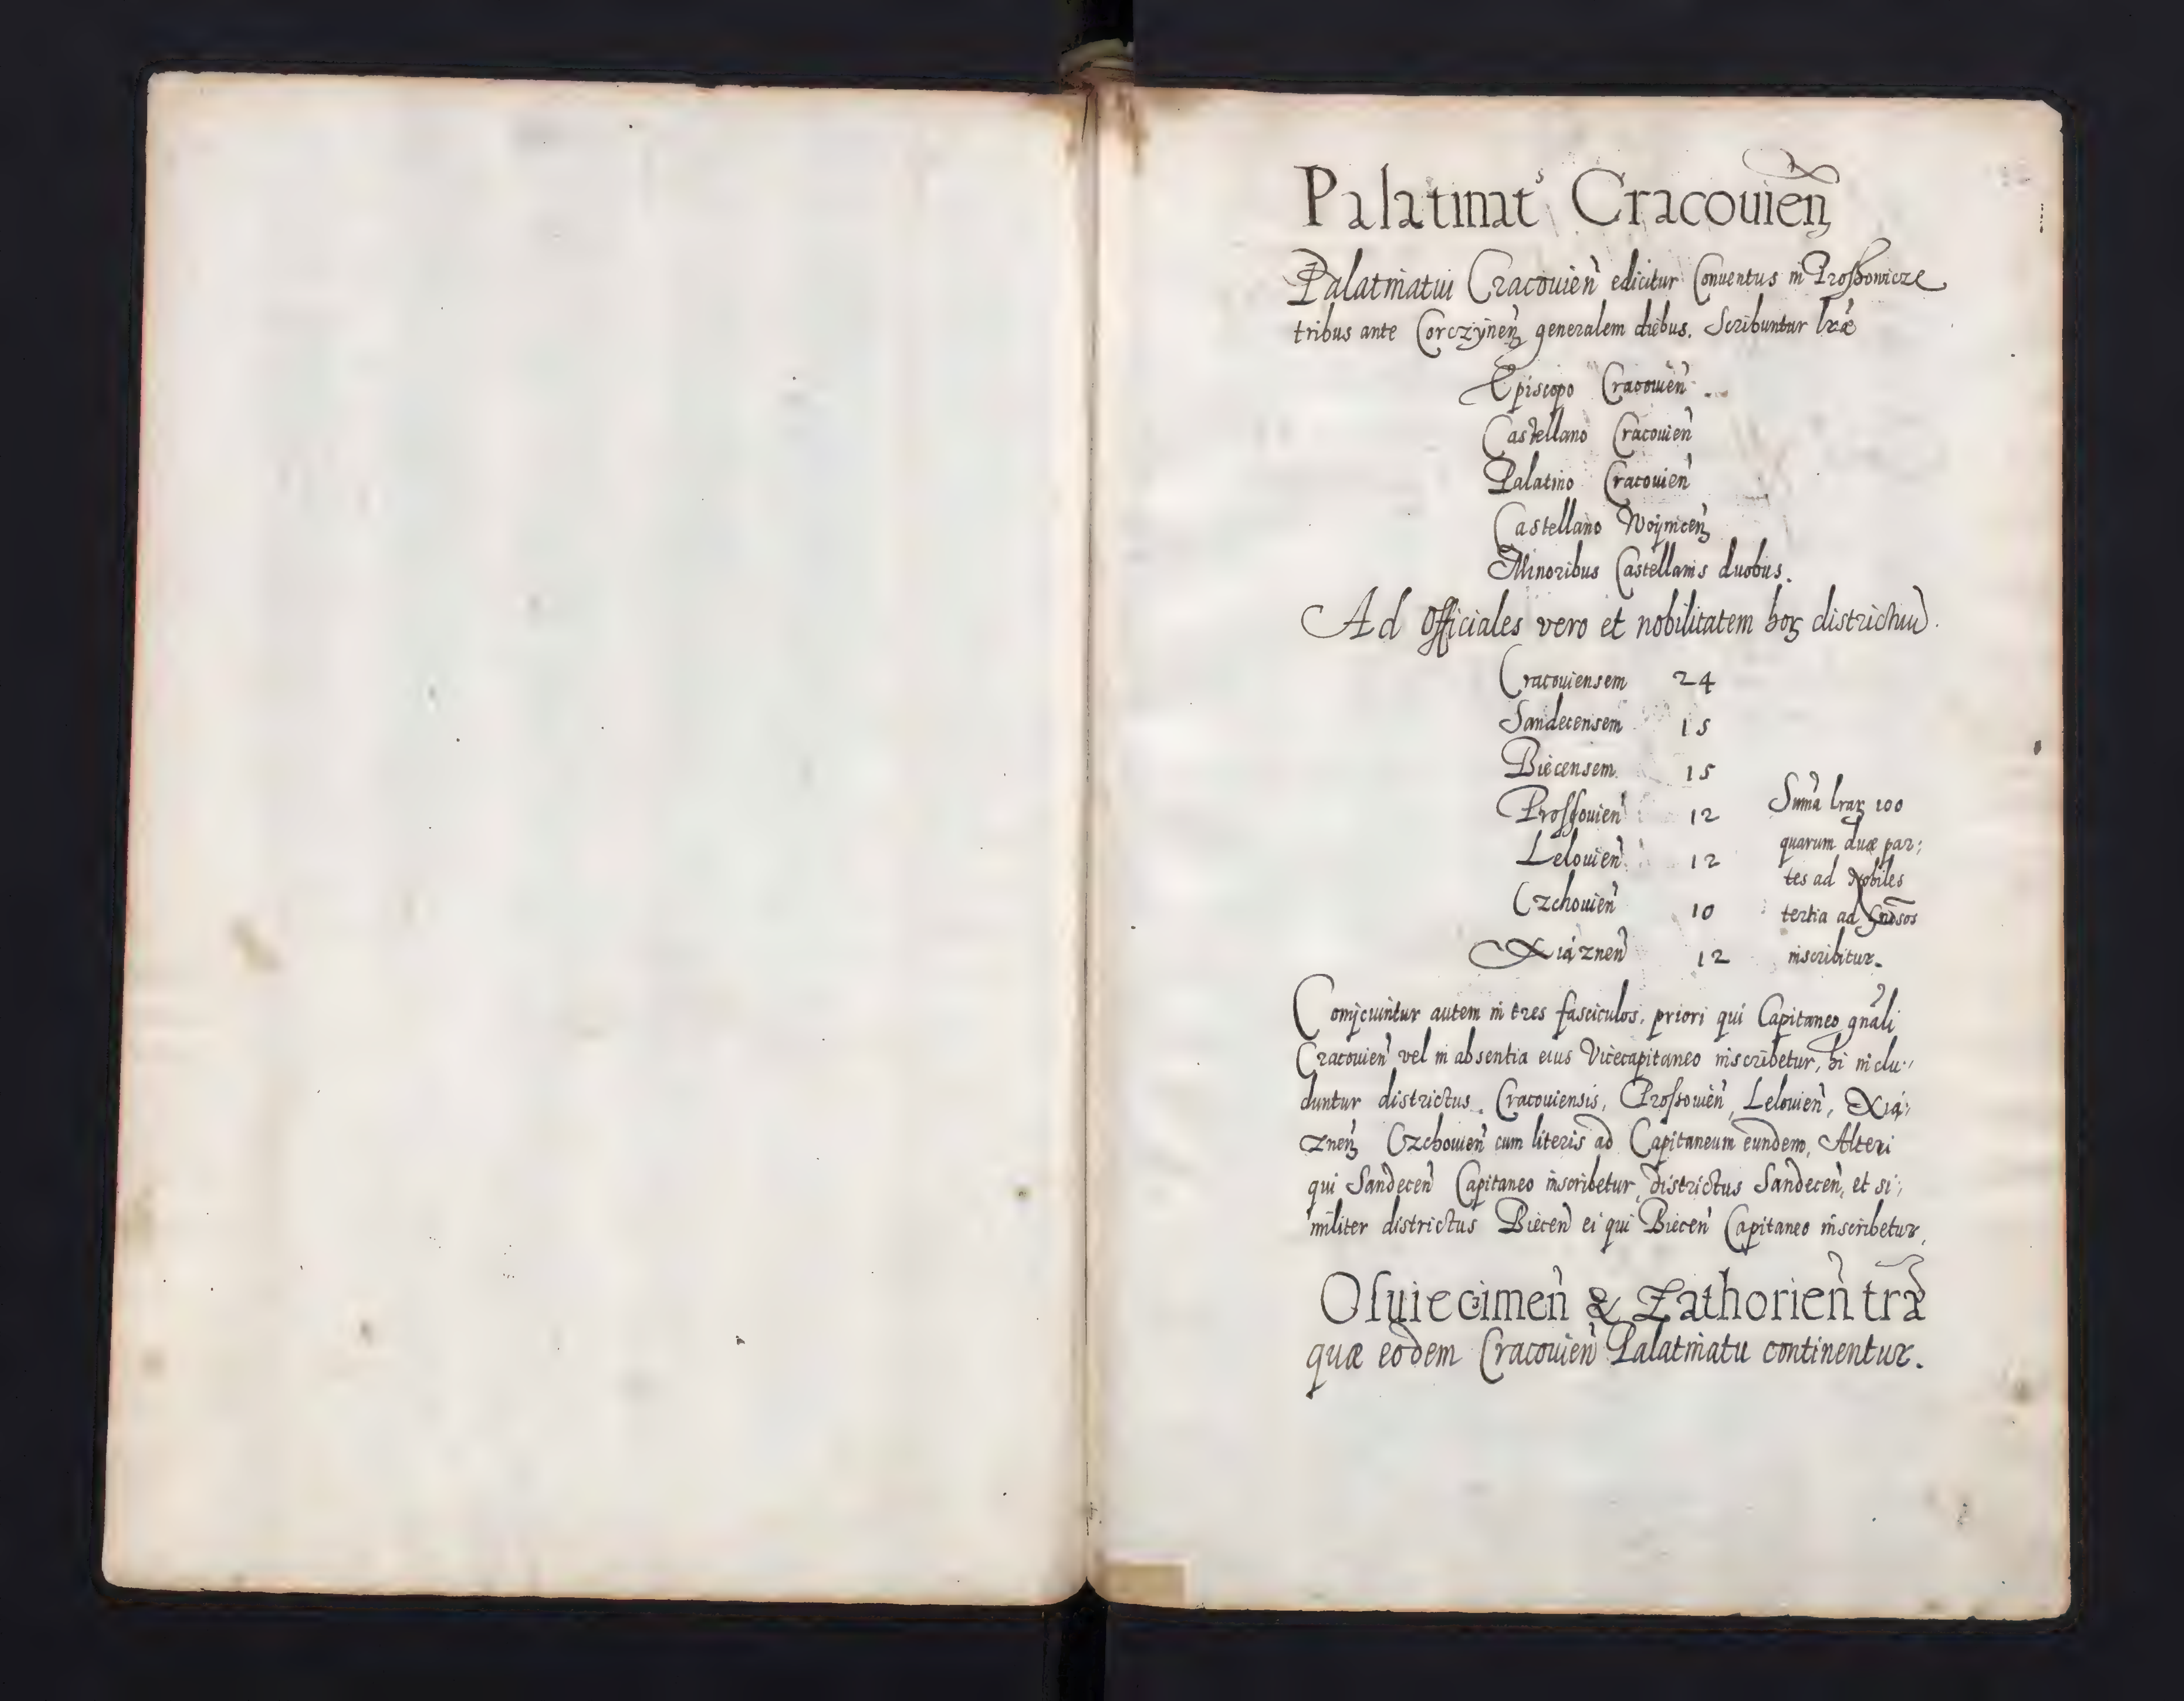 Palatinat⁹ Cracouien̄
Palatinatui Cracouien̄ edicitur Conuentus in Proſſowicze
tribus ante Corczÿnen̄ generalem diebus. Scribuntur lræ
Episcopo Cracouien̄
Castellano Cracouien̄
Palatino Cracouien̄
Castellano Woÿnicen̄
Minoribus Castellanis duobus.
Ad Officiales vero et nobilitatem hoꝝ districtuū.
Cracouiensem 24
Sandecensem 15
Biecensem 15
Proſſouien̄ 12
Lelouien̄ 12
Czchouien̄ 10
Xiąznen̄ 12
Sum̄a lraꝝ 100
quarum duæ par:
tes ad Nobiles
tertia ad
inscribitur.
Conijcuintur autem in tres fasciculos, priori qui Capitaneo gn̄ali
Cracouien̄ vel in absentia eius Vicecapitaneo inscribetur, hi inclu:
duntur districtus. Cracouiensis, Proſſouien̄, Lelouien̄, Xią:
znen̄ Czchouien̄ cum literis ad Capitaneum eundem, Alteri
qui Sandecen̄ Capitaneo inscribetur, districtus Sandecen̄, et si:
militer districtus Biecen̄ ei qui Biecen̄ Capitaneo inscribetur,
Oſuiecimen̄ & Zathorien̄ tr̄a
quæ eodem Cracouien̄ Palatinatu continentur.